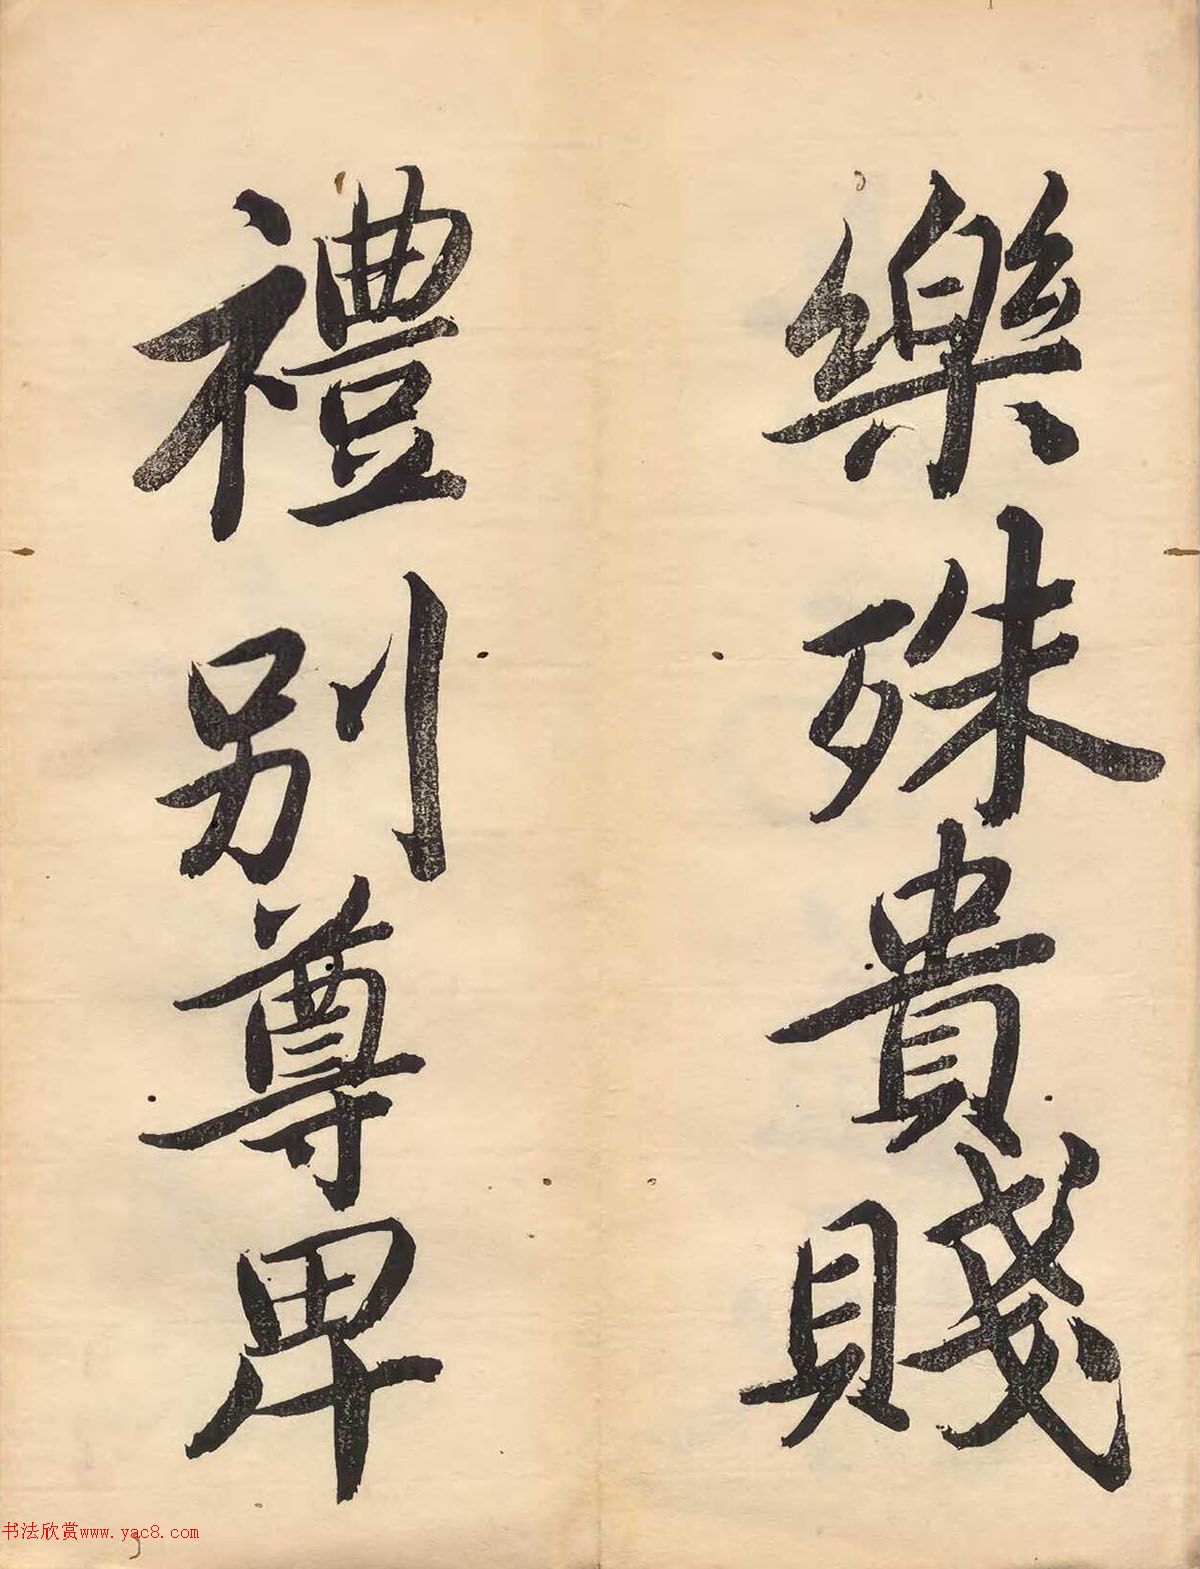 樂殊貴賤
禮別尊卑
书法欣赏www.yac8.com